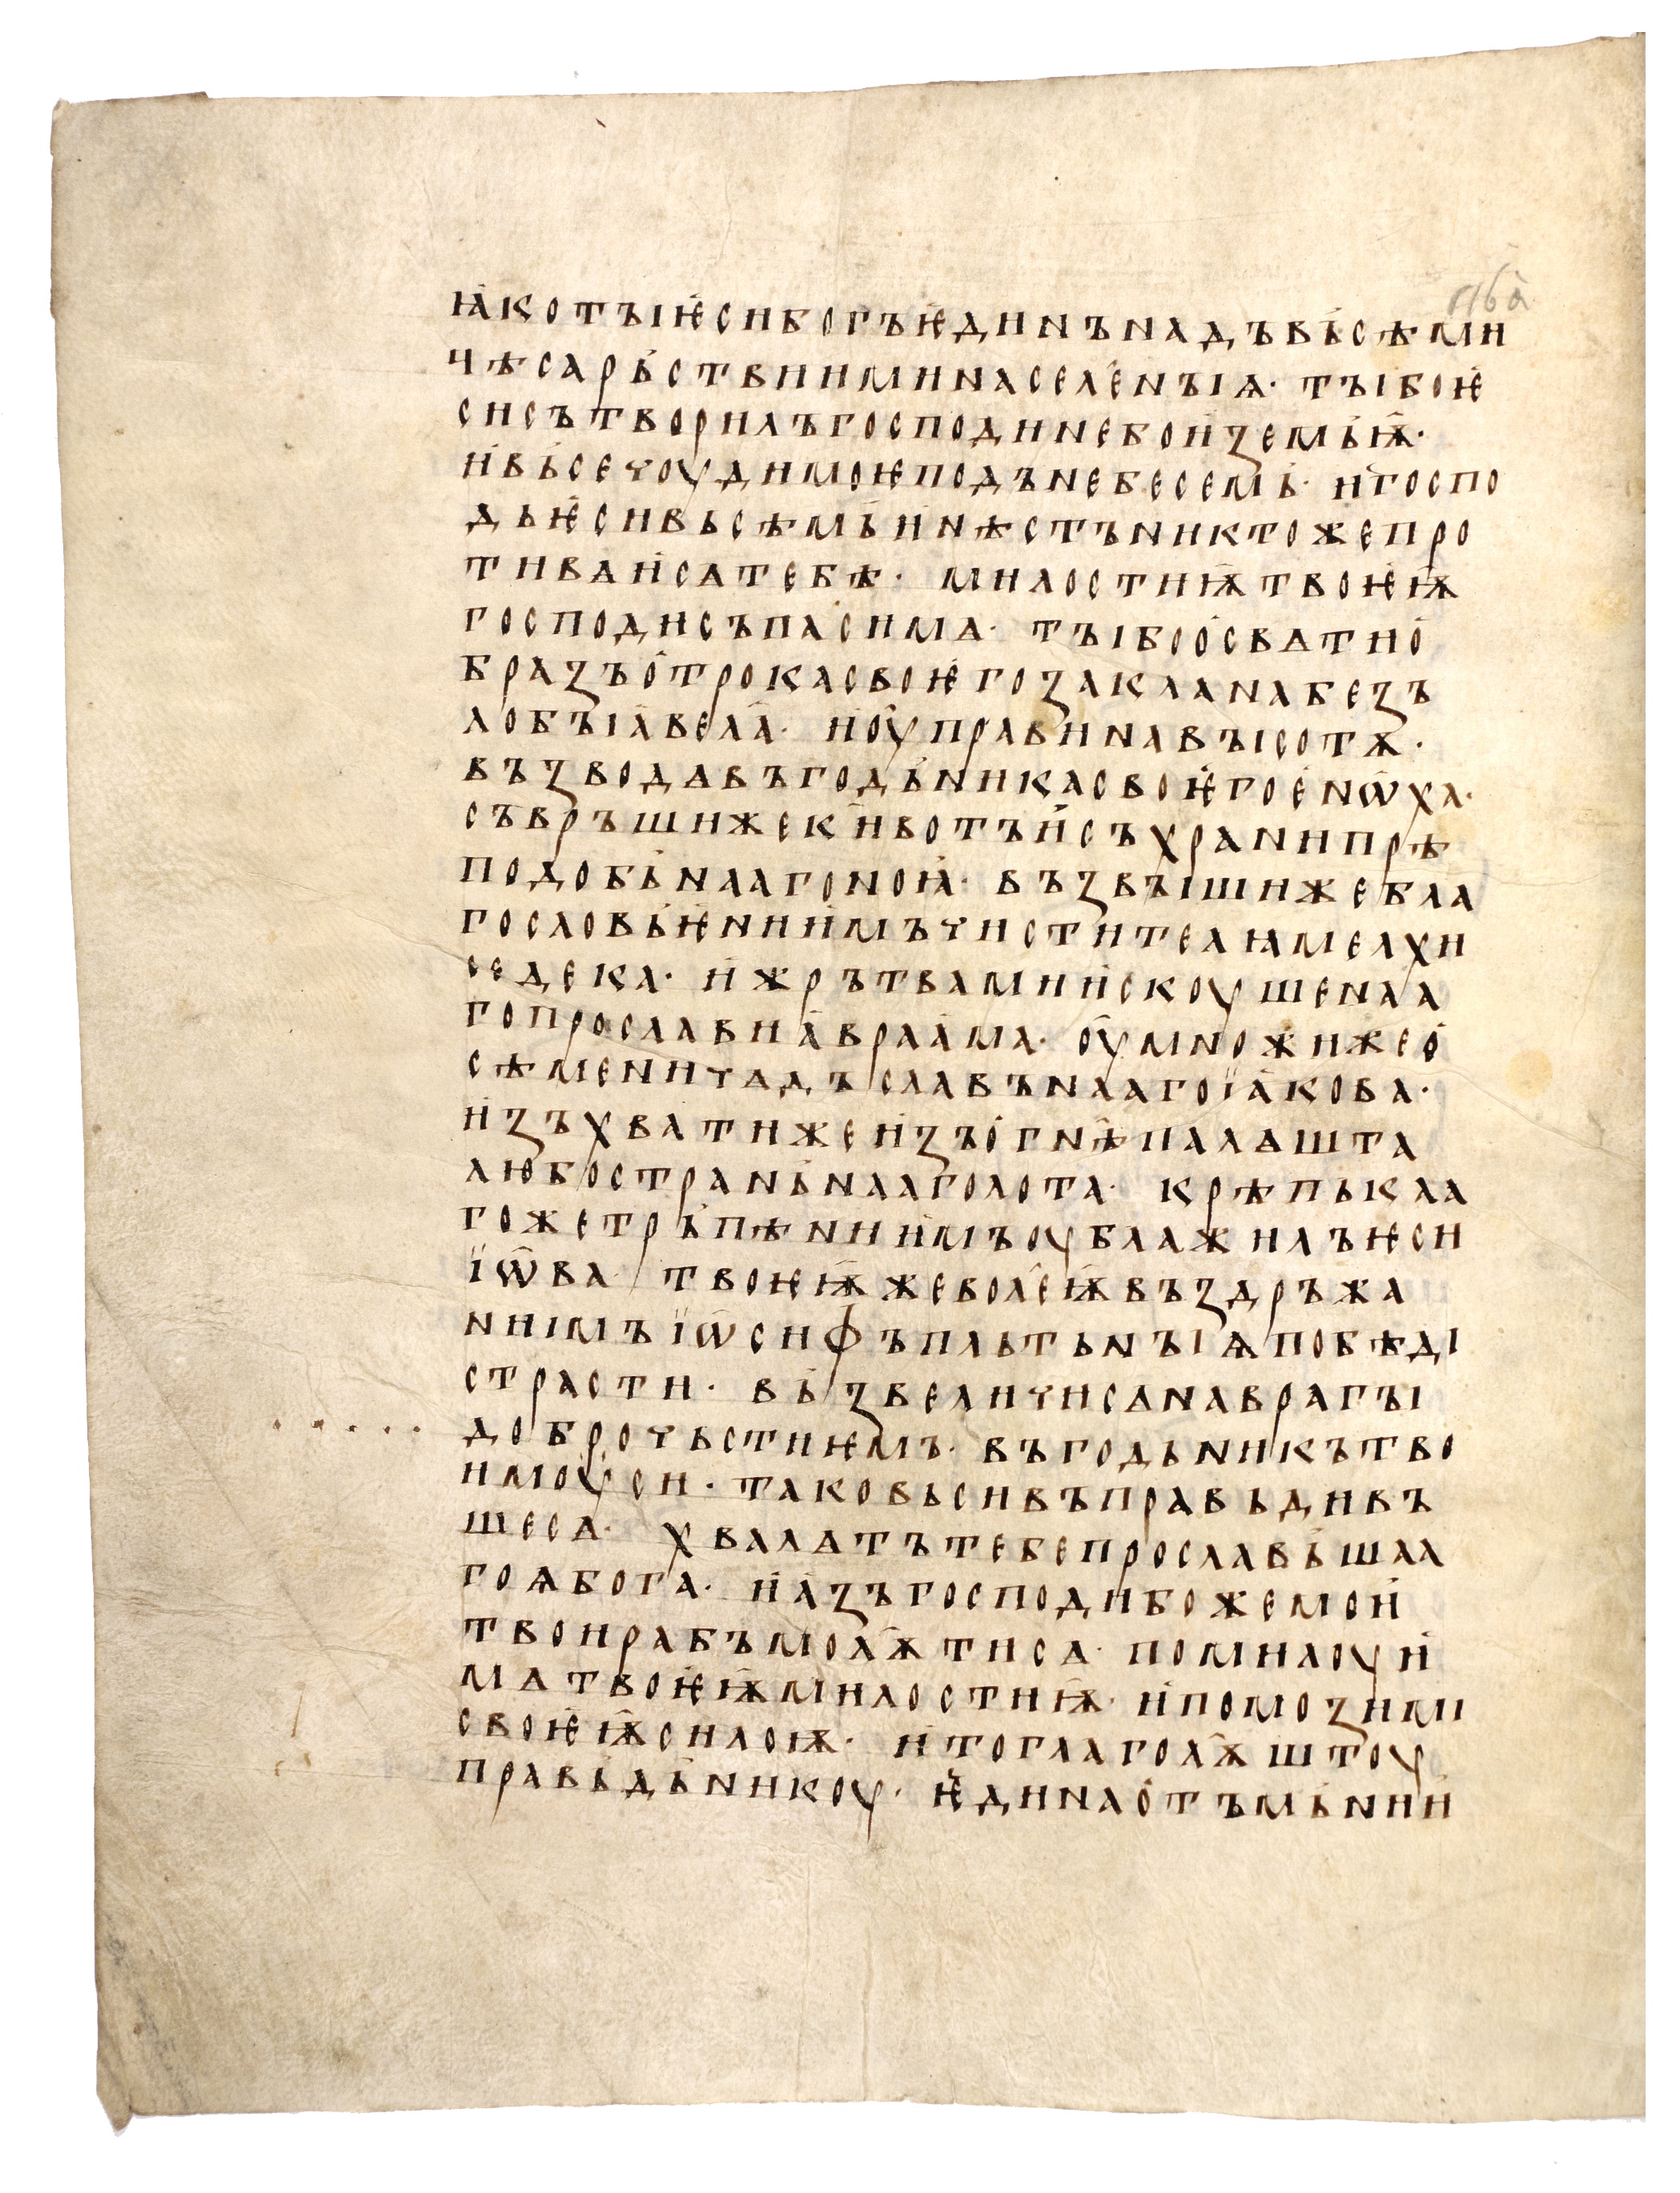 ꙗ҆котꙑѥ҆сибогъѥ҆динънадъвь҆сѣми
чѣсарь҆ствииминаселен҄ꙑѩ· тꙑбоѥ
сисътворилъгосподинебои҆земьѭ҄·
и҆вь҆сечоудимоѥподънебесемь· и҆госпо
дьѥ҆сивьсѣмъ҆и҆нѣстъниктожепро
тиваи҆сѧтебѣ· милостиѭ҄твоѥѭ҄
господисъпасимѧ· тꙑбоо҆свѧтио҆
бразъо҆трокасвоѥ҆гозакланабезъ
лобꙑа҆велꙗ҄· и҆оу҆правинавꙑсотѫ·
възводѧвъгодьникасвоѥ҆гое҆нѡ҄ха·
съвръшижеки҄вотъи҆съхранипрѣ
подобь҆наагоноꙗ҆· възвꙑшижебла
гословь҆ѥниимъчистителꙗмелхи
седека· и҆жрътвамиискоушенаа
гопрославиа҆враа҆ма· оу҆множижео҆
сѣменичѧдъславънаагоїа҆кова·
и҆зъхватижеи҆зъо҆гнꙗ҄палѧшта
любостраньнааголота· крѣпъкаа
гожетръпѣниимъоублажилъѥси
їѡ҄ва твоѥѭжевол҄еѭвъздръжа
ниімъїѡ҄сифъпльтьнꙑѩпобѣді
страсти· въ҆звеличисѧнаврагꙑ
доброчьстиѥмъ· въгодьникътво
имоѵ҆си· таковьсивъправьдивъ
шесѧ· хвалѧтътебепрославь҆шаа
гоѩбога· и҆а҆зъгосподибожемои҆
твоирабъмол҄ѫтисѧ· помилоуи҆
мѧтвоѥ҆ѭмилостиѭ҄· и҆помозими
своѥ҆ѭ҄силоѭ· и҆тоглагол҄ѫштоу
правь҆дь҆никоу· ѥ҆динао҆тъмь҆нии҆